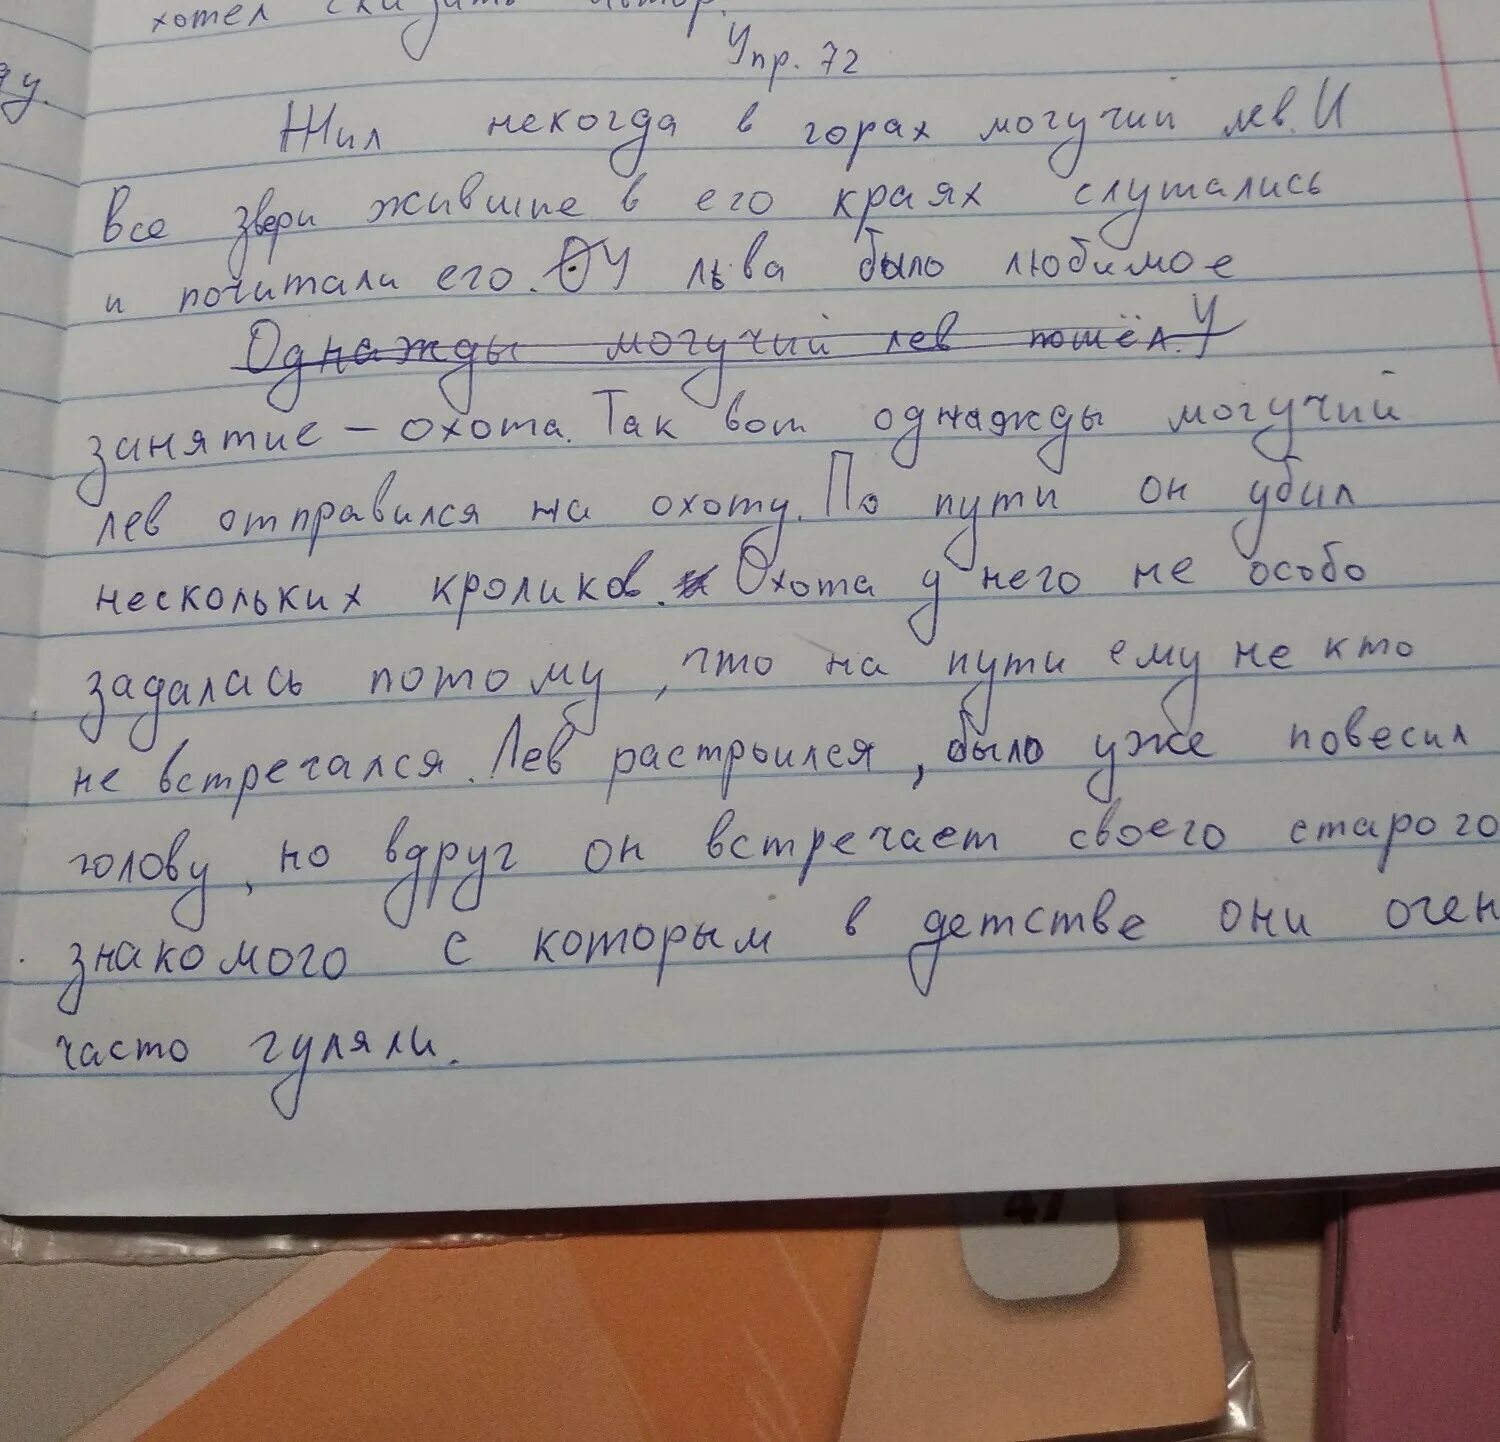 хотел сказать автор.
Упр. 72
ду.
Жил некогда в горах могучий лев. И
все звери жившие в его краях слушались
и почитали его. У льва было любимое
Однажды могучий лев пошёл. У
занятие - охота. Так вот однажды могучий
лев отправился на охоту. По пути он убил
нескольких кроликов. Охота у него не особо
задалась потому, что на пути ему не кто
не встречался. Лев растроился, было уже повесил
голову, но вдруг он встречает своего старого
знакомого с которым в детстве они очен
часто гуляли.
41